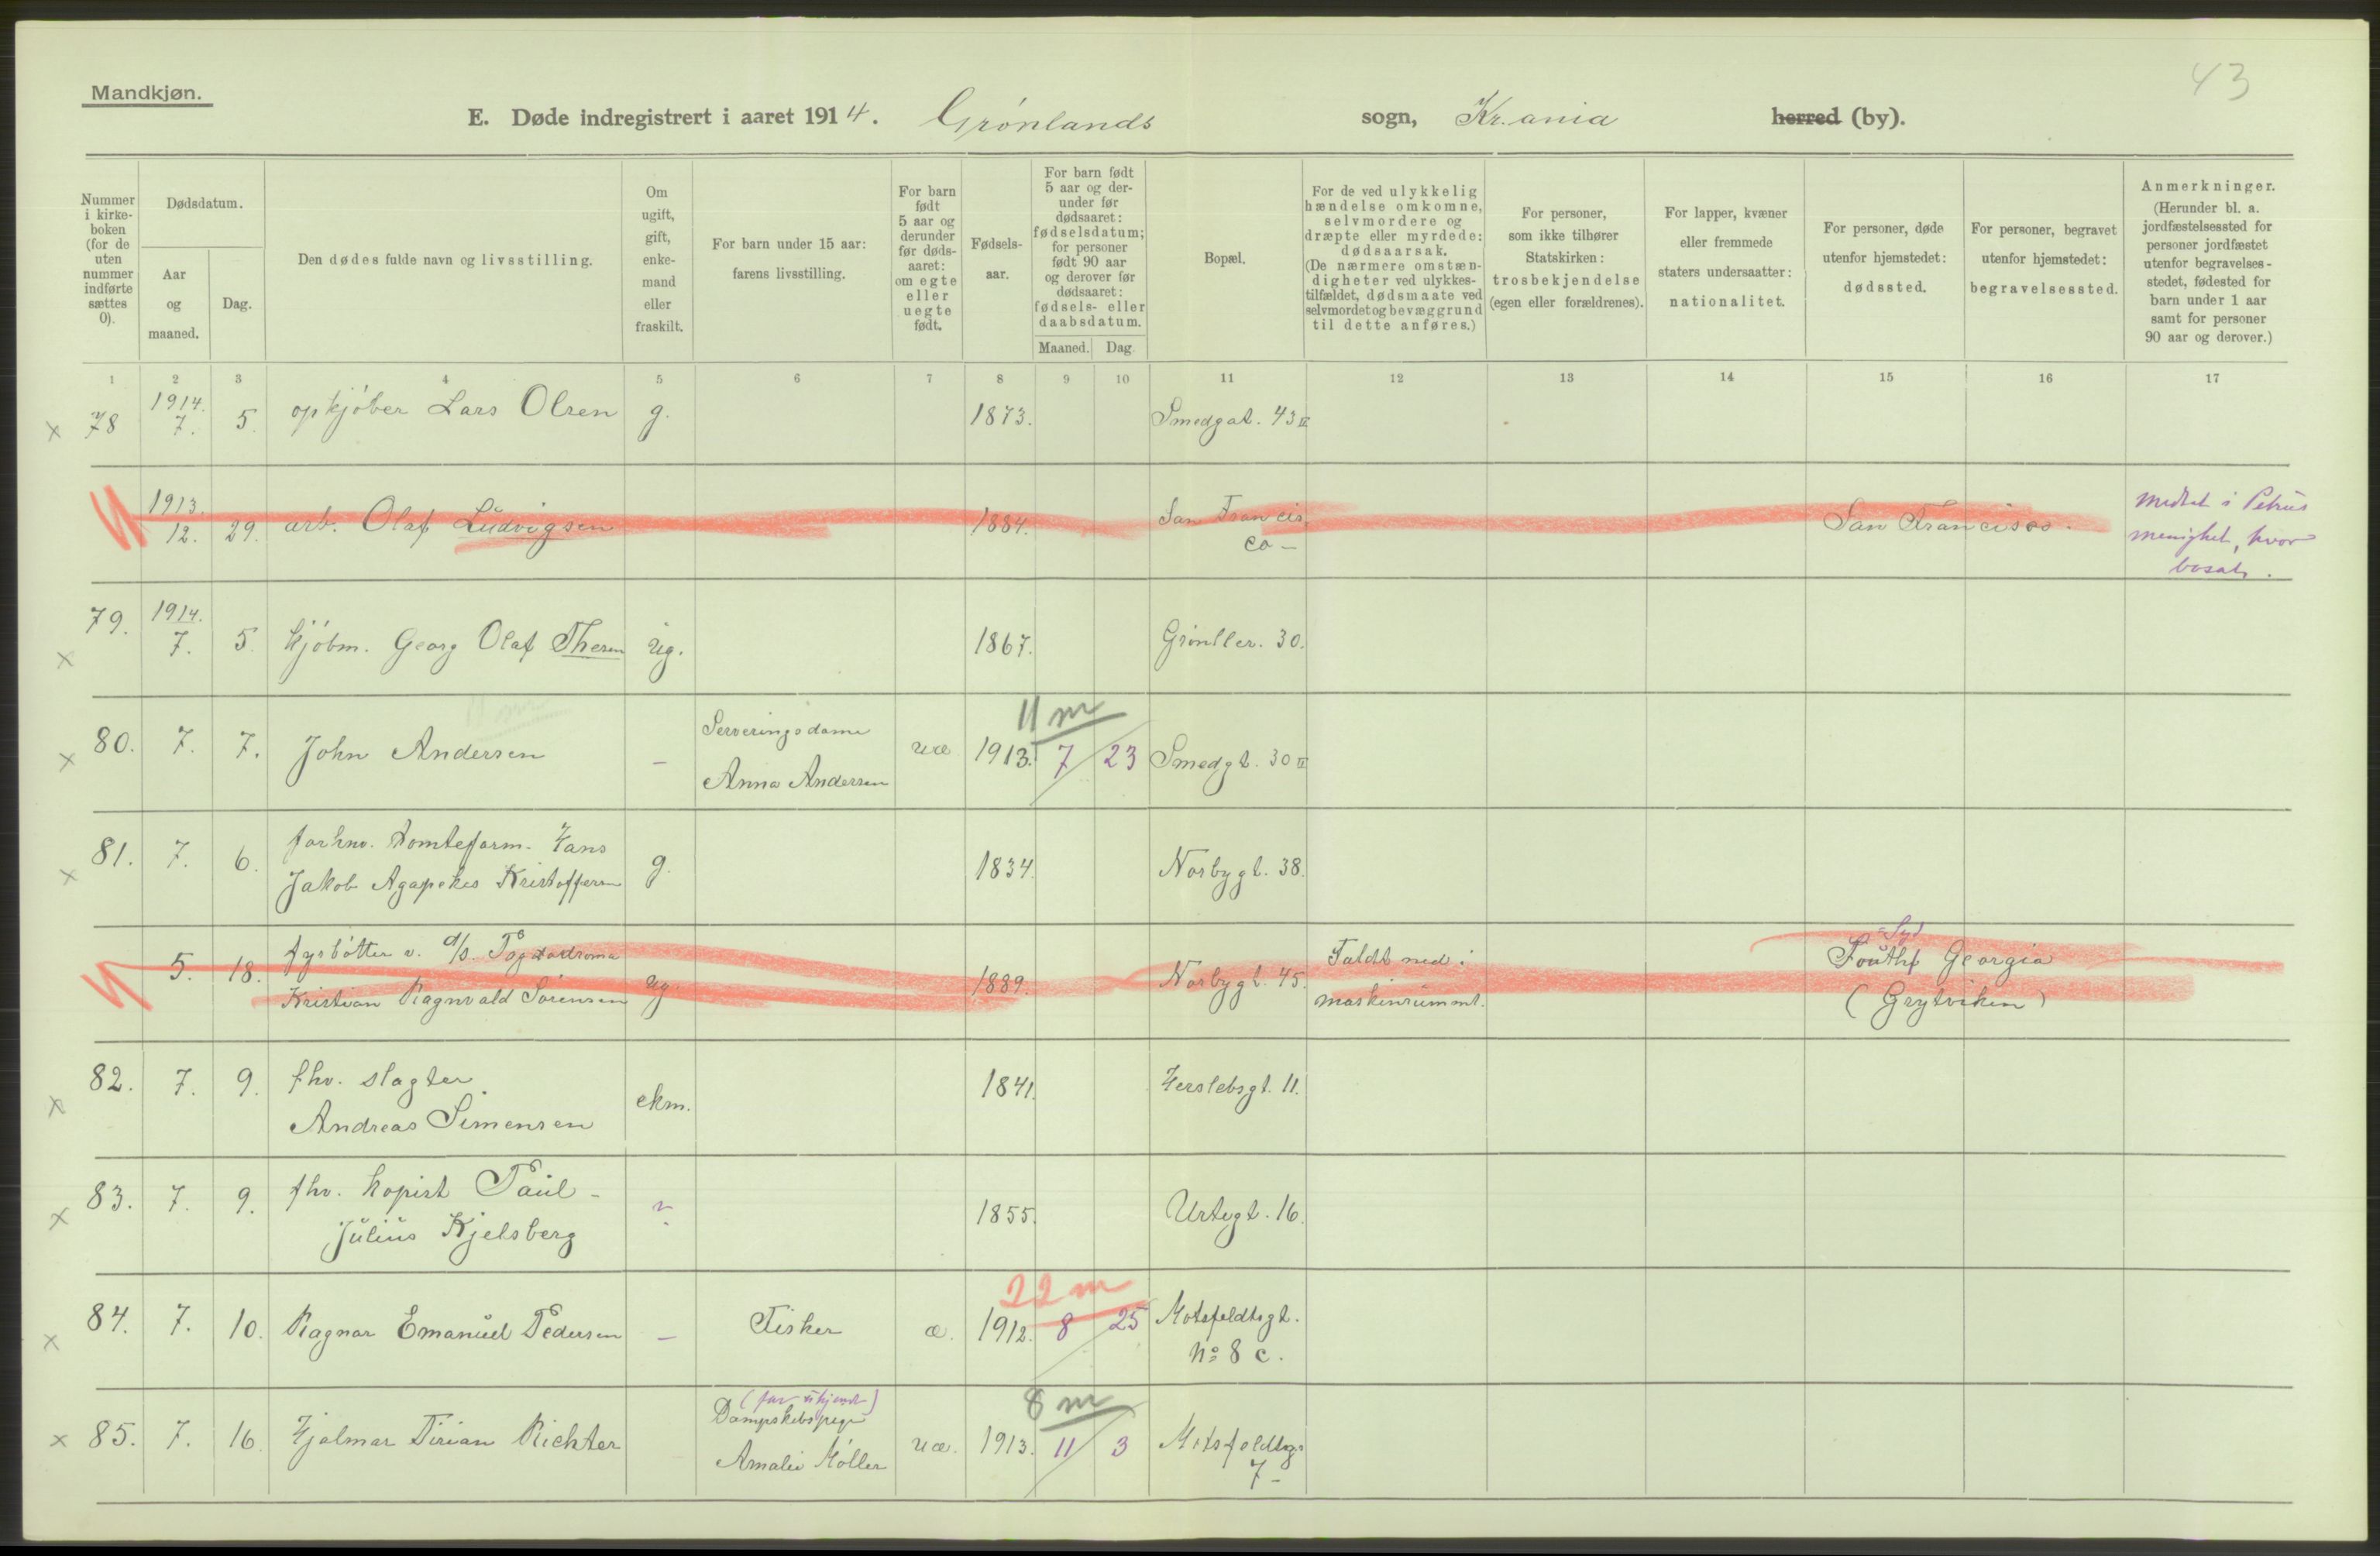 43
Mandkjøn.
E. Døde indregistrert i aaret 1914. Grønlands sogn, Kr.ania herred (by).
Nummer i kirke-boken (for de uten nummer indførte sættes 0).
Dødsdatum.
Aar og maaned.
Dag.
Den dødes fulde navn og livsstilling.
Om ugift, gift, enke-mand eller fraskilt.
For barn under 15 aar: farens livsstilling.
For barn født 5 aar og derunder før døds-aaret: om egte eller uegte født.
Fødsels-aar.
For barn født 5 aar og der-under før dødsaaret: fødselsdatum; for personer født 90 aar og derover før dødsaaret: fødsels- eller daabsdatum.
Maaned. Dag.
Bopæl.
For de ved ulykkelig hændelse omkomne, selvmordere og dræpte eller myrdede: dødsaarsak. (De nærmere omstæn-digheter ved ulykkes-tilfældet, dødsmaate ved selvmordet og bevæggrund til dette anføres.)
For personer, som ikke tilhører Statskirken: trosbekjendelse (egen eller forældrenes).
For lapper, kvæner eller fremmede staters undersaatter: nationalitet.
For personer, døde utenfor hjemstedet: dødssted.
For personer, begravet utenfor hjemstedet: begravelsessted.
Anmerkninger. (Herunder bl. a. jordfæstelsessted for personer jordfæstet utenfor begravelses-stedet, fødested for barn under 1 aar samt for personer 90 aar og derover.)
1 2 3 4 5 6 7 8 9 10 11 12 13 14 15 16 17
x 78 1914. 7. 5. opkjøber Lars Olsen g. 1873. Smedgat. 43 II
1913. 12. 29. arb. Olaf Ludvigsen 1884. San Francis
co - San Francisco. Medtat i Petrus
menighet, hvor
bosat.
x 79. 1914. 7. 5. kjøbm. Georg Olaf Thesen ug. 1867. Grønller. 30.
11 m
Serveringsdame
x 80. 7. 7. John Andersen - uæ 1913. 7 / 23 Smedgt. 30 II
Anna Andersen
forhnv. tomteform. Hans
x 81. 7. 6. Jakob Agapetus Kristoffersen g. 1834. Norbygt. 38.
fyrbøtter v. d/s. Faldt ned i Syd
South Georgia
5. 18. Kristian Ragnvald Sørensen ug. 1889. Norbygt. 45. maskinrummet. (Grytviken)
x 82. 7. 9. fhv. slagter
Andreas Simensen ekm. 1841. Herslebsgt. 11.
x 83. 7. 9. fhv. kopist Paul -
Julius Kjelsberg ? 1855. Urtegt. 16.
22 m
x 84. 7. 10. Ragnar Emanuel Pedersen - Fisker æ. 1912. 8 / 25 Motzfeldtsgt.
No 8 c.
(far ukjendt) 8 m
Dampskibspige
x 85. 7. 16. Hjalmar Richter Amalie Møller uæ. 1913. 11 / 3 Motsfeldtsg.
7 -